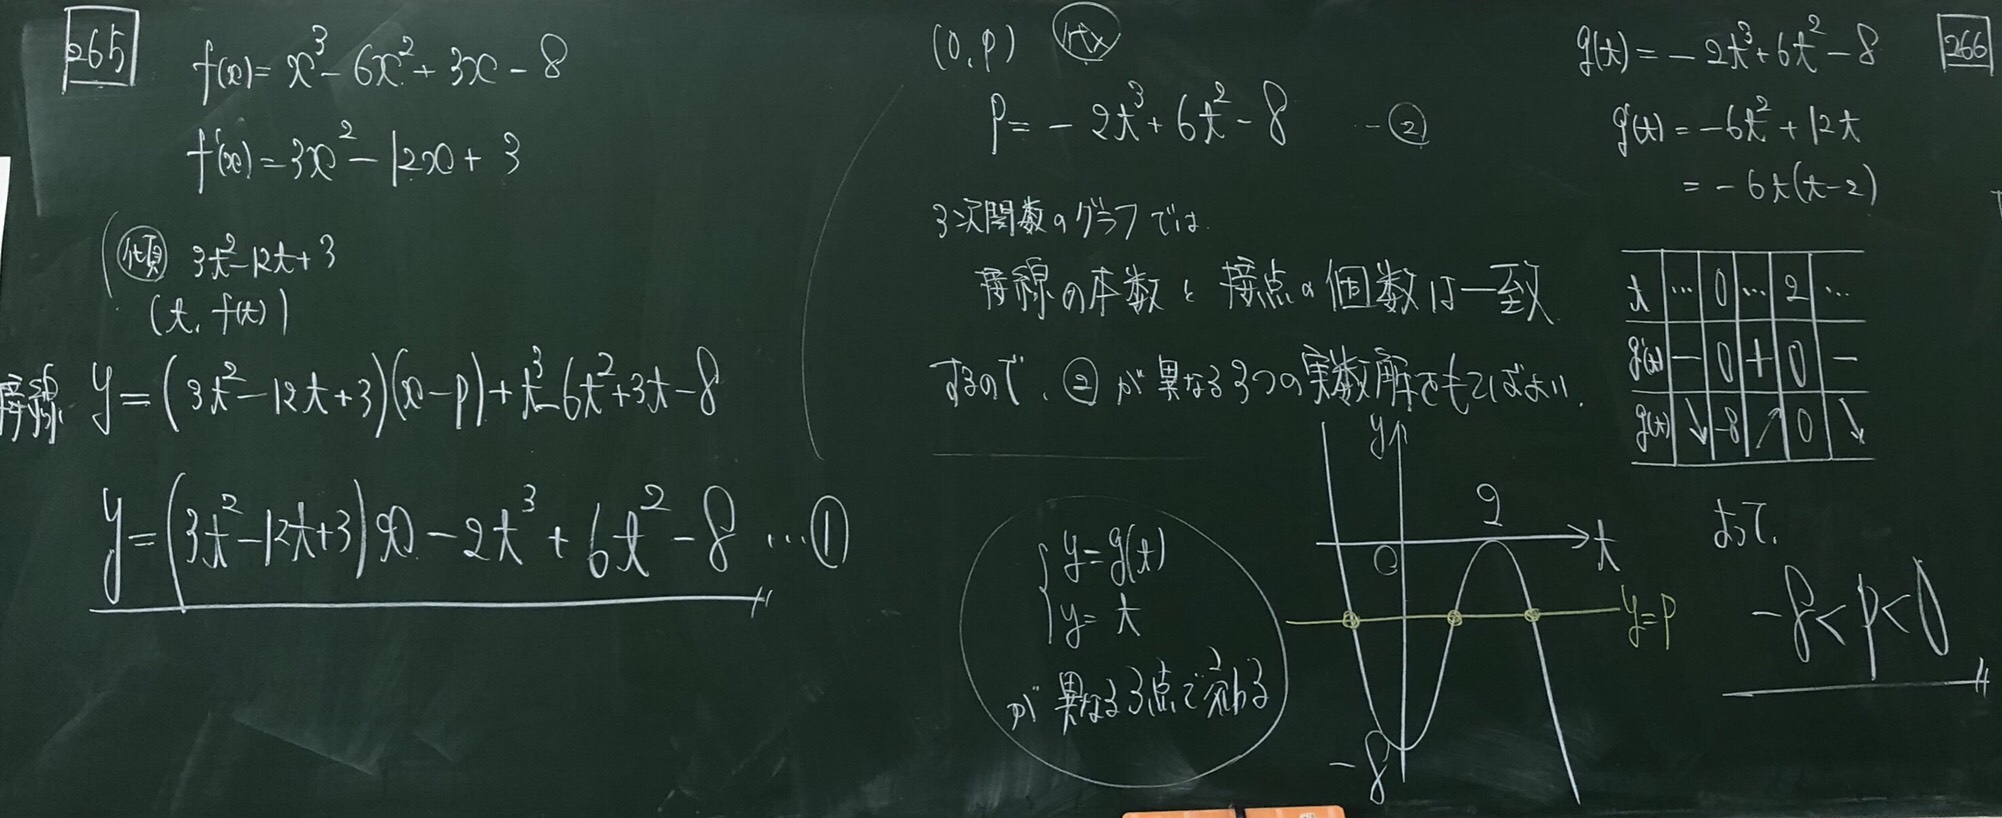 265
f(x) = x³ - 6x² + 3x - 8
f'(x) = 3x² - 12x + 3
傾 3t² - 12t + 3
(t, f(t))
接線
y = (3t² - 12t + 3)(x - p) + t³ - 6t² + 3t - 8
y = (3t² - 12t + 3)x - 2t³ + 6t² - 8 …①
(0, p) 代入
p = - 2t³ + 6t² - 8 -②
3次関数のグラフでは
接線の本数と接点の個数は一致
するので、②が異なる3つの実数解をもてばよい.
y = g(t)
y = t
が異なる3点で交わる
y
2
O
t
y=p
-8
266
g(t) = - 2t³ + 6t² - 8
g'(t) = -6t² + 12t
= - 6t(t-2)
t … 0 … 2 …
g'(t) - 0 + 0 -
g(t) ↘ -8 ↗ 0 ↘
よって,
-8 < p < 0